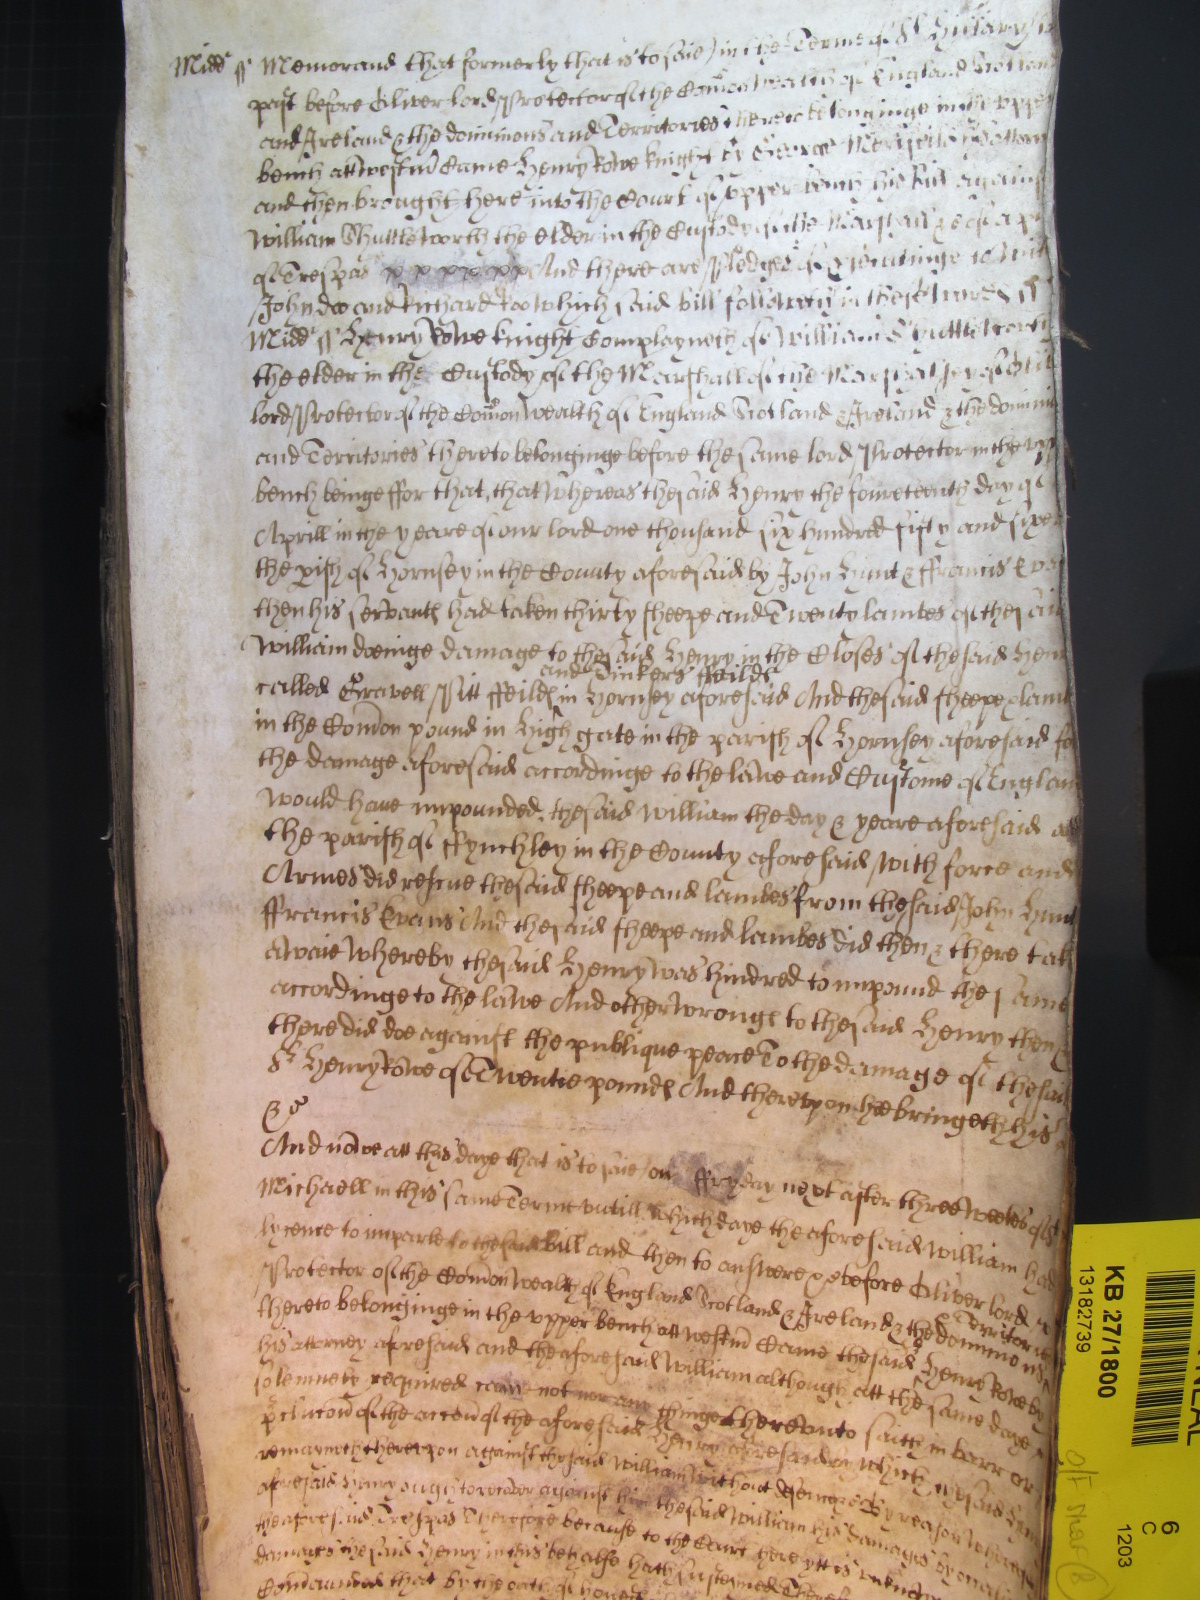 Midd ss Memorand that formerly that is to saie in the Terme of St Hillary
past before Oliver lord Protector of the Comon wealth of England Scotland
and Ireland & the dominions and Territories thereto belonginge in the upper
bench att Westm Came Henry Rowe knight by George
and then brought here into the Court of upper bench his bill against
William Shuttleworth the elder in the Custody of the Marshall &c of a
of Trespas And there are Pledges of
John doo and Richard Roo which said bill followeth in these wordes ss
Midd ss Henry Rowe knight Complayneth of William Shuttleworth
the elder in the Custody of the Marshall of the Marshalsey of Oliver
lord Protector of the Comon wealth of England Scotland & Ireland & the domini
and Territories thereto belonginge before the same lord Protector in the upp
bench beinge ffor that, that whereas the said Henry the fowreteenth day of
Aprill in the yeare of our lord one thousand six hundred fifty and sixe
the pish of Hornsey in the County aforesaid by John Hunt & ffrancis Eva
then his servants had taken thirty sheepe and Twenty lambes of the said
William doeinge damage to the said Henry in the Closes of the said Henr
and Tinkers ffeilds
called Gravell Pitt ffeilds in Hornsey aforesaid And the said sheepe & lamb
in the Comon pound in High gate in the parish of Hornsey aforesaid fo
the damage aforesaid accordinge to the lawe and Custome of Englan
would have impounded, the said William the day & yeare aforesaid att
the parish of ffynchley in the County aforesaid with force and
Armes did rescue the said sheepe and lambes from the said John Hunt
ffrancis Evans And the said sheepe and lambes did then & there tak
awaie whereby the said Henry was hindred to impound the same
accordinge to the lawe And other wrongs to the said Henry then &
there did doe against the publique peace To the damage of the said
Sr Henry Rowe of Twentie pounds And thereupon hee bringeth his
&c
And nowe att this daye that is to saie on ffryday next after three weekes of St
Michaell in this same Terme untill which daye the aforesaid William had
lycence to imparle to the said bill and then to answere &c before Oliver lord
Protector of the Comon wealth of England Scotland & Ireland & the dominions
Territories
thereto belonginge in the upper bench att Westm Came the said Henry Rowe by
his attorney aforesaid and the aforesaid William although att the same daye
solemnely required came not nor any thinge thereunto saith in barr or
pclucon of the accon of the aforesaid Henry aforesaid by which the said Hen
remayneth thereupon against the said William without defence &c by reason whereof
aforesaid Henry ought to recover against him the said William his damages by occasion
the aforesaid Trespas Therefore because to the Court here ytt is unknown
damages the said Henry in this behalfe hath susteined Therefore
Comaunded that by the oath of honest
KB 27/1800
13182739
6
C
1203